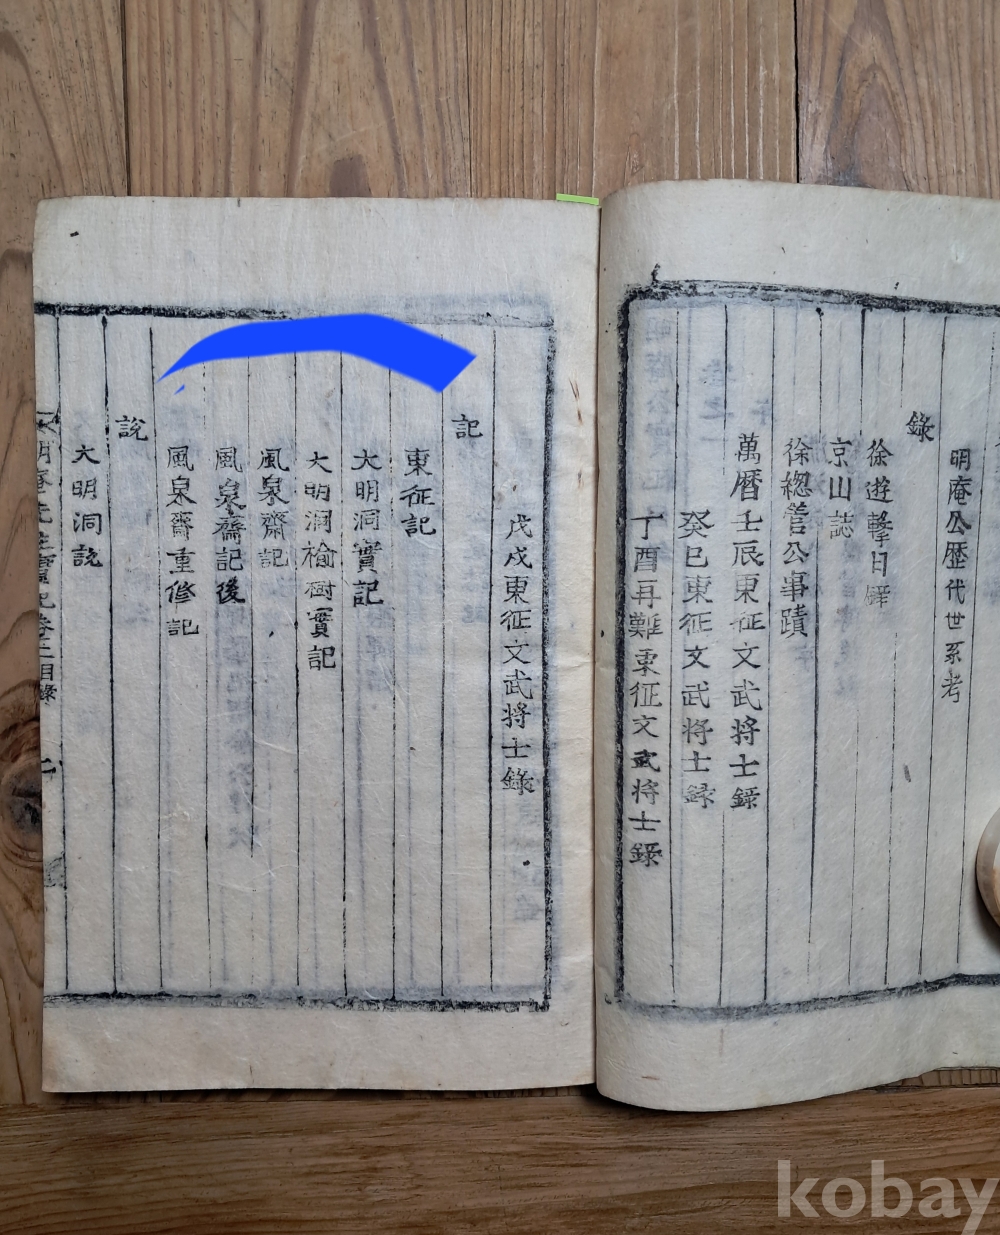 明庵公歷代世系考
錄
徐遊擊日
京山誌
徐緫管公事蹟
萬曆壬辰東征文武將士錄
癸巳東征文武將士錄
丁酉再難東征文武將士錄
戊戌東征文武將士錄
記
東征記
大明洞實記
大明洞楡樹實記
風泉齋記
風泉齋記後
風泉齋重修記
說
大明洞說
明庵先生實記卷二目錄
kobay